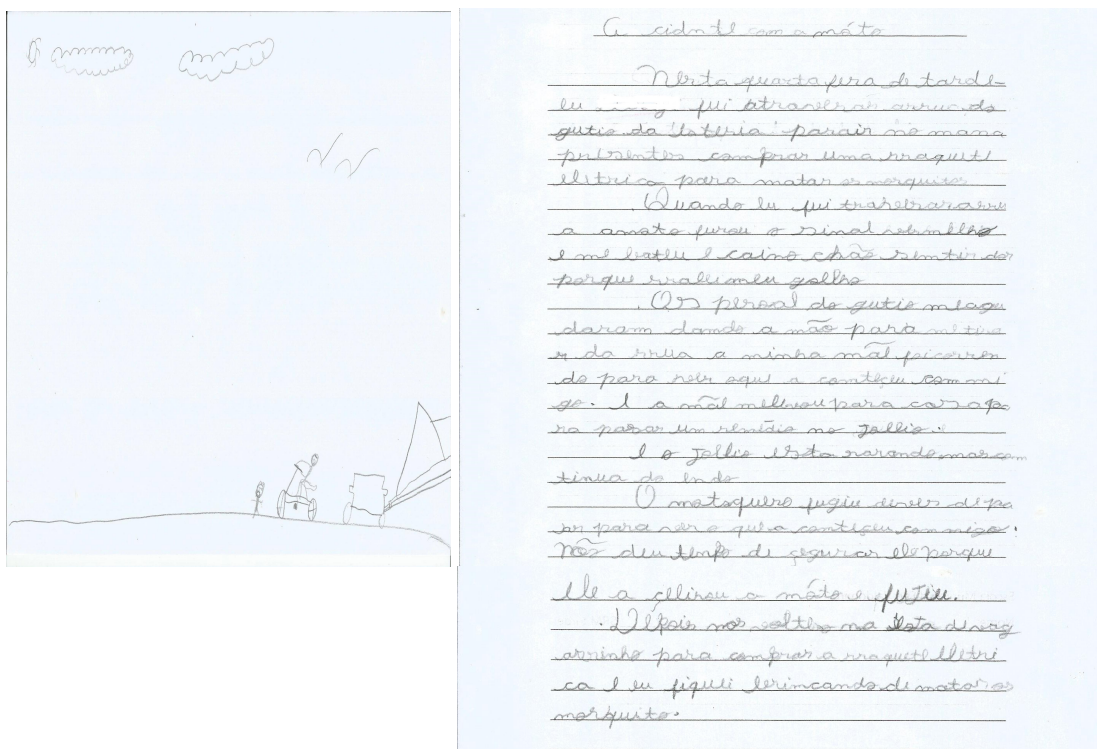 A cidnte com a máto
Nesta quarta fera de tarde
eu fui atraveras arrua do
gutio da loteria parair no mana
presentes comprar uma rraquete
eletrica para matar os mosquitos
Quando eu fui traveraarru
a amoto furou o sinal vermelho
e me bateu e caino chão sentir dor
porque rralei meu golho
Os persoal do gutio meagu
daram dando a mão para me tira
r da rrua a minha mãe foi corren
do para ver oque a conteçeu com mi
go. e a mãe me levou para casa pa
ra pasar um remédio no jolho.
e o jolho esta sarando mas com
tinua do endo
O motoquero fugiu envés de pa
ar para ver o que a conteçeu com migo.
não deu tenpo de çegurar ele porque
ele a çelirou a móto e futiu.
Dépois nos voltho na lota de verg
arinho para comprar a rraquete eletri
ca e eu fiquei brincando de matar os
mosquito.